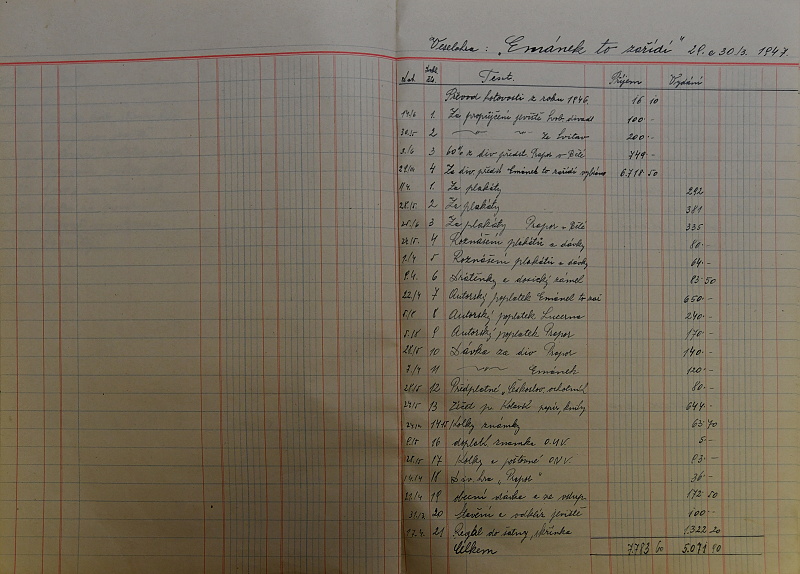 Veselohra: „Emánek to zařídí" 29. a 30/3. 1947.
Text. Příjem Vydání
Převod hotovosti z roku 1946 16 10
1 Za propůjčení jeviště 100 -
2 — " — " — za Svitav 200 -
3/6 3 60% z div. předst. Prapor v Bělé 749 -
4 Za div. předst. Emánek to zařídí vybráno 6.718 50
1/4. 1 Za plakáty 292
28/5 2 Za plakáty 381
25/6 3 Za plakáty Prapor v Bělé 335
4 Roznášení plakátů a dávky 80 -
1/4 5 Roznášení plakátů a dávky 64 -
9.4. 6 Drátěnky a 83 50
22/4 7 Autorský poplatek Emánek to zař 650 -
5/8 8 Autorský poplatek Lucerna 240 -
5/8 9 Autorský poplatek Prapor 170 -
28/5 10 Dávka za div Prapor 140 -
7/4 11 — " — Emánek 120 -
28/5 12 Předplatné „Českoslov. ochotník 80 -
13 papír, knihy 644 -
Kolky známky 63 70
16 doplat. známka O.N.V. 5 -
17 Kolky a poštovné O.N.V. 93 -
14/4 18 Div. hra „Prapor" 36 -
21/4 19 obecní dávka a ze vstup. 172 50
20 Stavění a odkliz jeviště 100 -
17.4. 21 do šatny skříňka 1.322 20
Celkem 7.783 60 5.071 90